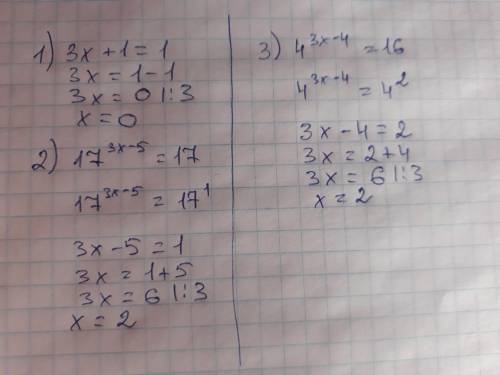 1) 3x + 1 = 1
3x = 1 - 1
3x = 0 |:3
x = 0
2) 17^{3x-5} = 17
17^{3x-5} = 17^1
3x - 5 = 1
3x = 1 + 5
3x = 6 |:3
x = 2
3) 4^{3x-4} = 16
4^{3x-4} = 4^2
3x - 4 = 2
3x = 2 + 4
3x = 6 |:3
x = 2